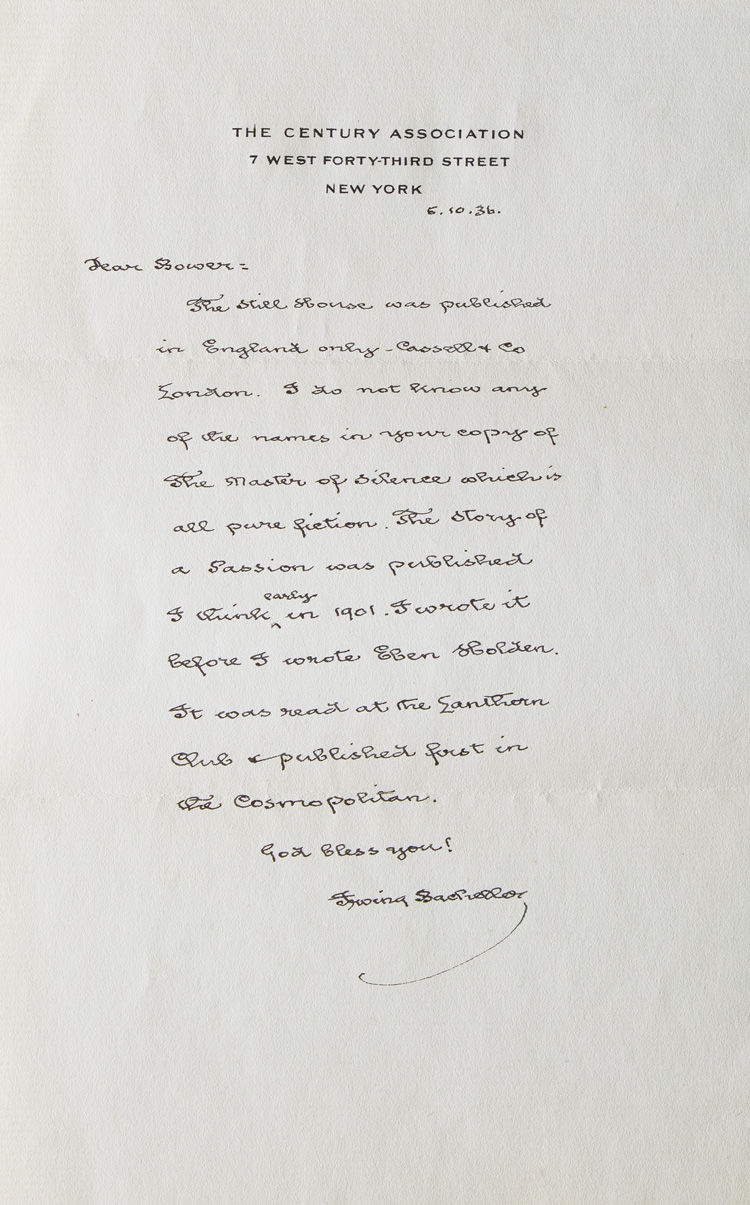 THE CENTURY ASSOCIATION
7 WEST FORTY-THIRD STREET
NEW YORK
5.10.36.
Dear Bower=
The Still House was published
in England only - Cassell & Co
London. I do not know any
of the names in your copy of
The Master of Silence which is
all pure fiction. The Story of
a Passion was published
I think early in 1901. I wrote it
before I wrote Eben Holden.
It was read at the Lanthorn
Club & published first in
the Cosmopolitan.
God bless you!
Irving Bacheller